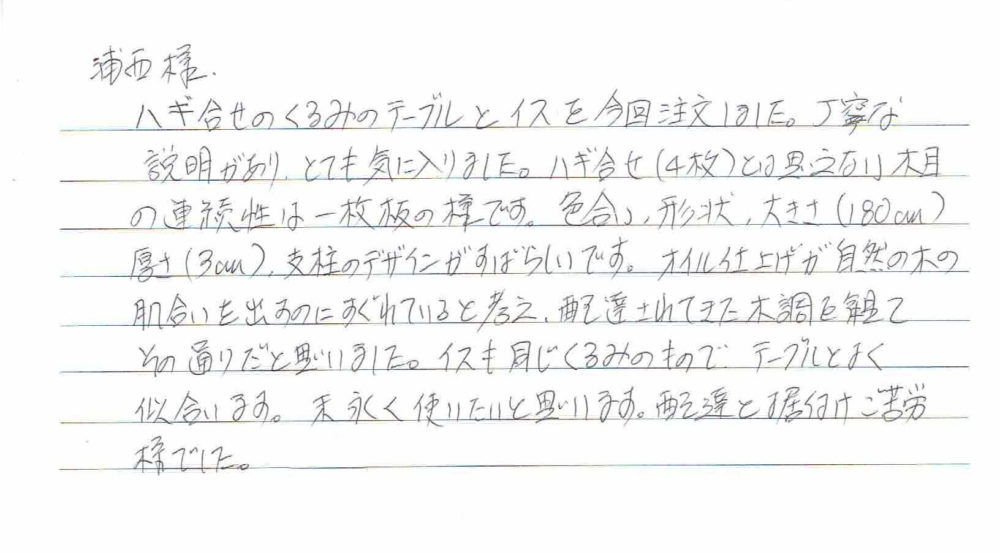 浦西様.
ハギ合せのくるみのテーブルとイスを今回注文しました。丁寧な
説明があり、とても気に入りました。ハギ合せ(4枚)とは思えない木目
の連続性は一枚板の様です。色合い、形状、大きさ(180cm)
厚さ(3cm)、支柱のデザインがすばらしいです。オイル仕上げが自然の木の
肌合いを出すのにすぐれていると考え、配達されてきた木調を観て
その通りだと思いました。イスも同じくるみのもので テーブルとよく
似合います。末永く使いたいと思います。配達と据付けご苦労
様でした。